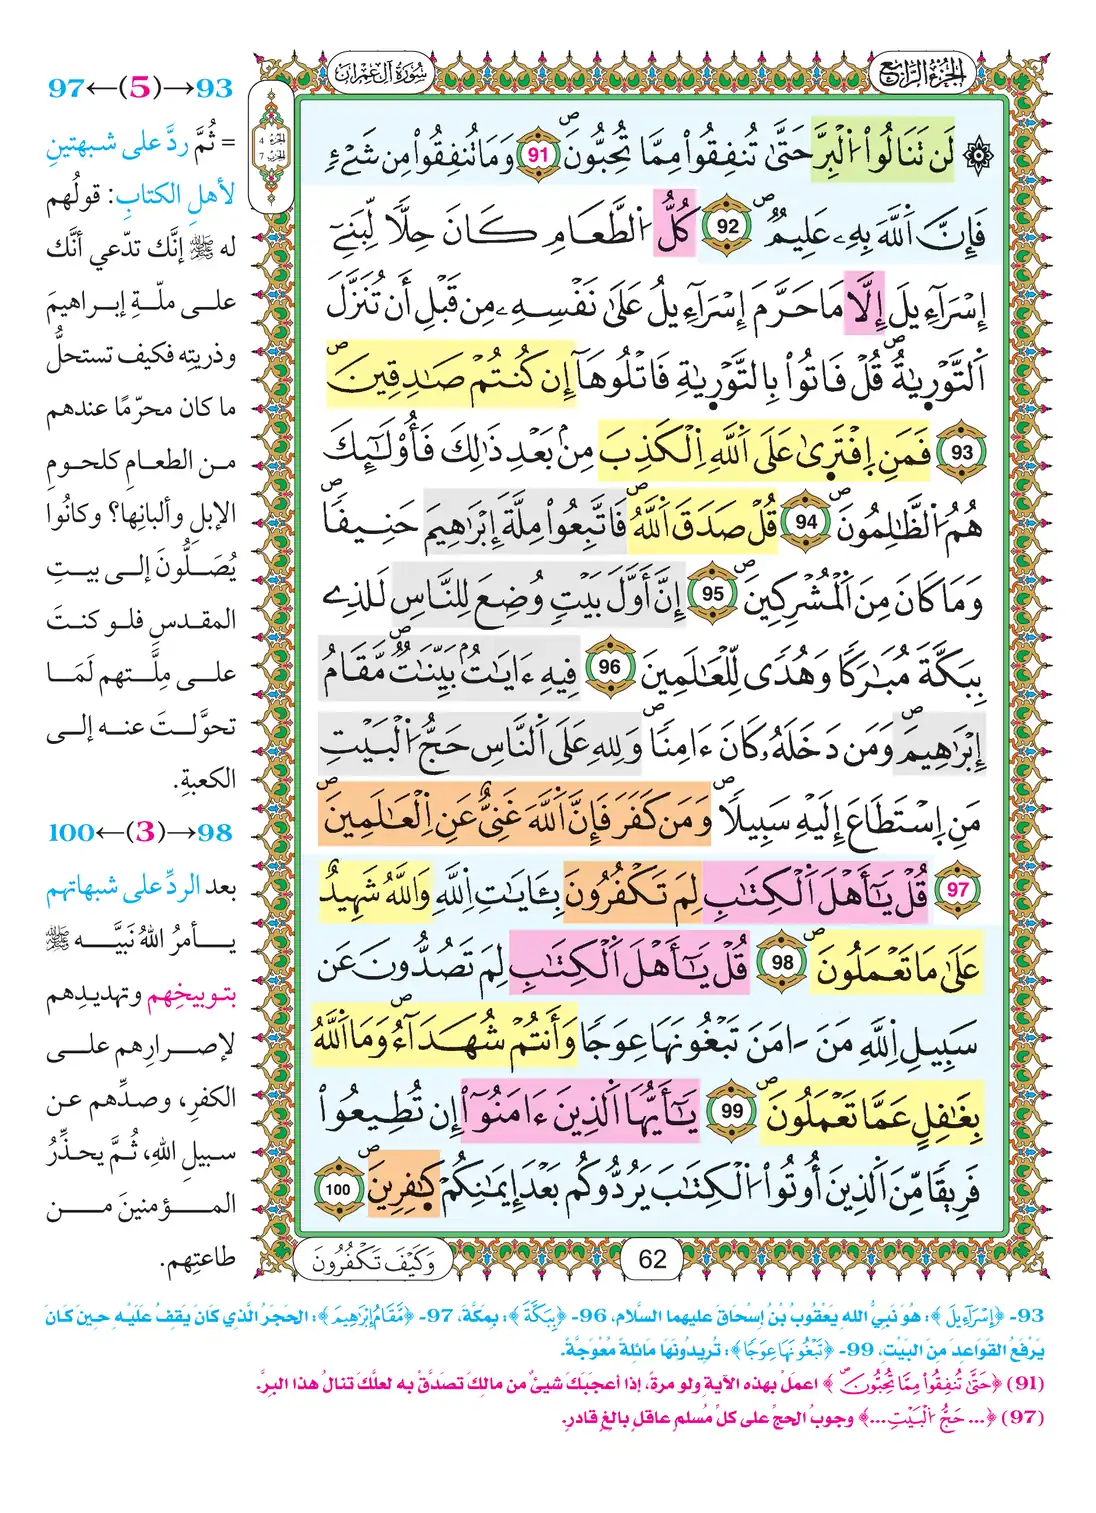 الجزء الرابع
سورة آل عمران
الجزء 4
الحزب 7
۞ لَن تَنَالُواْ اُلْبِرَّ حَتَّىٰ تُنفِقُواْ مِمَّا تُحِبُّونَۖ 91 وَمَا تُنفِقُواْ مِن شَےْءٖ
فَإِنَّ اَللَّهَ بِهِۦ عَلِيمٞۖ 92 كُلُّ اُلطَّعَامِ كَانَ حِلّٗا لِّبَنِےٓ
إِسْرَآءِيلَ إِلَّا مَا حَرَّمَ إِسْرَآءِيلُ عَلَىٰ نَفْسِهِۦ مِن قَبْلِ أَن تُنَزَّلَ
اَلتَّوْرَىٰةُۖ قُلْ فَاتُواْ بِالتَّوْرَىٰةِ فَاتْلُوهَآ إِن كُنتُمْ صَٰدِقِينَۖ
93 فَمَنِ اِفْتَرَىٰ عَلَى اَللَّهِ اِلْكَذِبَ مِنۢ بَعْدِ ذَٰلِكَ فَأُوْلَٰٓئِكَ
هُمُ اُلظَّٰلِمُونَۖ 94 قُلْ صَدَقَ اَللَّهُۖ فَاتَّبِعُواْ مِلَّةَ إِبْرَٰهِيمَ حَنِيفٗاۖ
وَمَا كَانَ مِنَ اَلْمُشْرِكِينَۖ 95 إِنَّ أَوَّلَ بَيْتٖ وُضِعَ لِلنَّاسِ لَلذِے
بِبَكَّةَ مُبَٰرَكٗا وَهُدٗى لِّلْعَٰلَمِينَ 96 فِيهِ ءَايَٰتُۢ بَيِّنَٰتٞۖ مَّقَامُ
إِبْرَٰهِيمَۖ وَمَن دَخَلَهُۥ كَانَ ءَامِنٗاۖ وَلِلهِ عَلَى اَلنَّاسِ حَجُّ اُلْبَيْتِ
مَنِ اِسْتَطَاعَ إِلَيْهِ سَبِيلٗاۖ وَمَن كَفَرَ فَإِنَّ اَللَّهَ غَنِيٌّ عَنِ اِلْعَٰلَمِينَۖ
97 قُلْ يَٰٓأَهْلَ اَلْكِتَٰبِ لِمَ تَكْفُرُونَ بِـَٔايَٰتِ اِللَّهِ وَاللَّهُ شَهِيدٌ
عَلَىٰ مَا تَعْمَلُونَۖ 98 قُلْ يَٰٓأَهْلَ اَلْكِتَٰبِ لِمَ تَصُدُّونَ عَن
سَبِيلِ اِللَّهِ مَنَ ـامَنَ تَبْغُونَهَا عِوَجٗا وَأَنتُمْ شُهَدَآءُۖ وَمَا اَللَّهُ
بِغَٰفِلٍ عَمَّا تَعْمَلُونَۖ 99 يَٰٓأَيُّهَا اَلذِينَ ءَامَنُوٓاْ إِن تُطِيعُواْ
فَرِيقٗا مِّنَ اَلذِينَ أُوتُواْ اُلْكِتَٰبَ يَرُدُّوكُم بَعْدَ إِيمَٰنِكُمْ كَٰفِرِينَۖ 100
62
وَكَيْفَ تَكْفُرُونَ
93→(5)←97
= ثُمَّ ردَّ على شبهتينِ
لأهلِ الكتابِ: قولُهم
له ﷺ إنَّك تدّعي أنَّك
على ملّةِ إبراهيمَ
وذريتِه فكيف تستحلُّ
ما كان محرّمًا عندهم
من الطعامِ كلحومِ
الإبلِ وألبانِها؟ وكانُوا
يُصَلُّونَ إلى بيتِ
المقدسِ فلو كنتَ
على مِلَّتهم لَمَا
تحوَّلتَ عنه إلى
الكعبةِ.
98→(3)←100
بعد الردِّ على شبهاتهم
يأمرُ اللهُ نَبيَّه ﷺ
بتوبيخِهم وتهديدِهم
لإصرارِهم على
الكفرِ، وصدِّهم عن
سبيلِ اللهِ، ثُمَّ يحذِّرُ
المؤمنينَ من
طاعتِهم.
93- ﴿إِسْرَآءِيلَ﴾: هُوَ نَبيُّ اللهِ يَعْقُوبُ بْنُ إسْحَاقَ عليهما السَّلام، 96- ﴿بِبَكَّةَ﴾: بِمَكَّةَ، 97- ﴿مَّقَامُ إِبْرَٰهِيمَ﴾: الحَجَرُ الَّذي كَانَ يَقِفُ عَلَيْهِ حِينَ كَانَ
يَرْفَعُ القَوَاعدَ مِنَ البَيْتِ، 99- ﴿تَبْغُونَهَا عِوَجًا﴾: تُرِيدُونَهَا مَائلةً مُعْوَجَّةً.
(91) ﴿حَتَّىٰ تُنفِقُواْ مِمَّا تُحِبُّونَۖ﴾ اعملْ بهذه الآيةِ ولو مرةً، إذا أعجبَكَ شيئٌ من مالِكَ تصدَّقْ به لعلَّكَ تنالُ هذا البرَّ.
(97) ﴿... حَجُّ اُلْبَيْتِ...﴾ وجوبُ الحجِّ على كلِّ مُسلمٍ عاقلٍ بالغٍ قادرٍ.